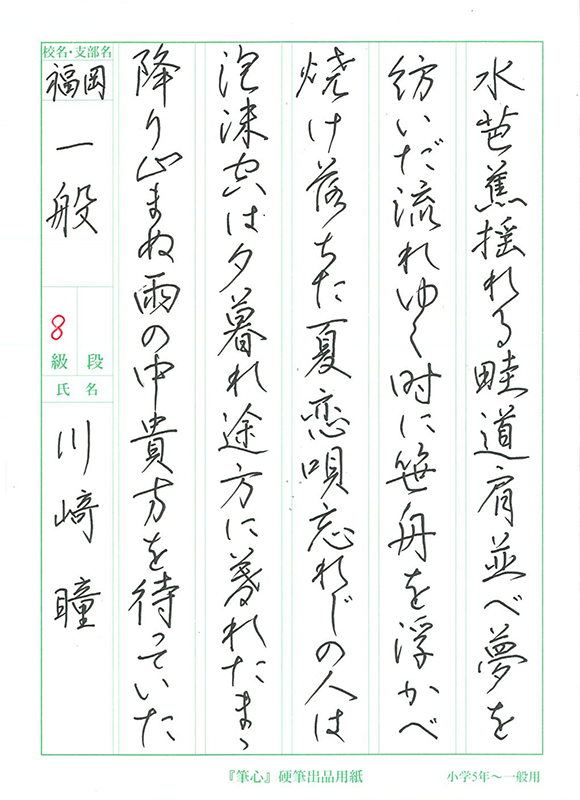 水芭蕉揺れる畦道肩並べ夢を
紡いだ流れゆく時に笹舟を浮かべ
焼け落ちた夏恋唄忘れじの人は
泡沫空は夕暮れ途方に暮れたまゝ
降り止まぬ雨の中貴方を待っていた
校名・支部名
福岡
一般
8
級 段
氏 名
川﨑 瞳
『筆心』硬筆出品用紙
小学5年〜一般用